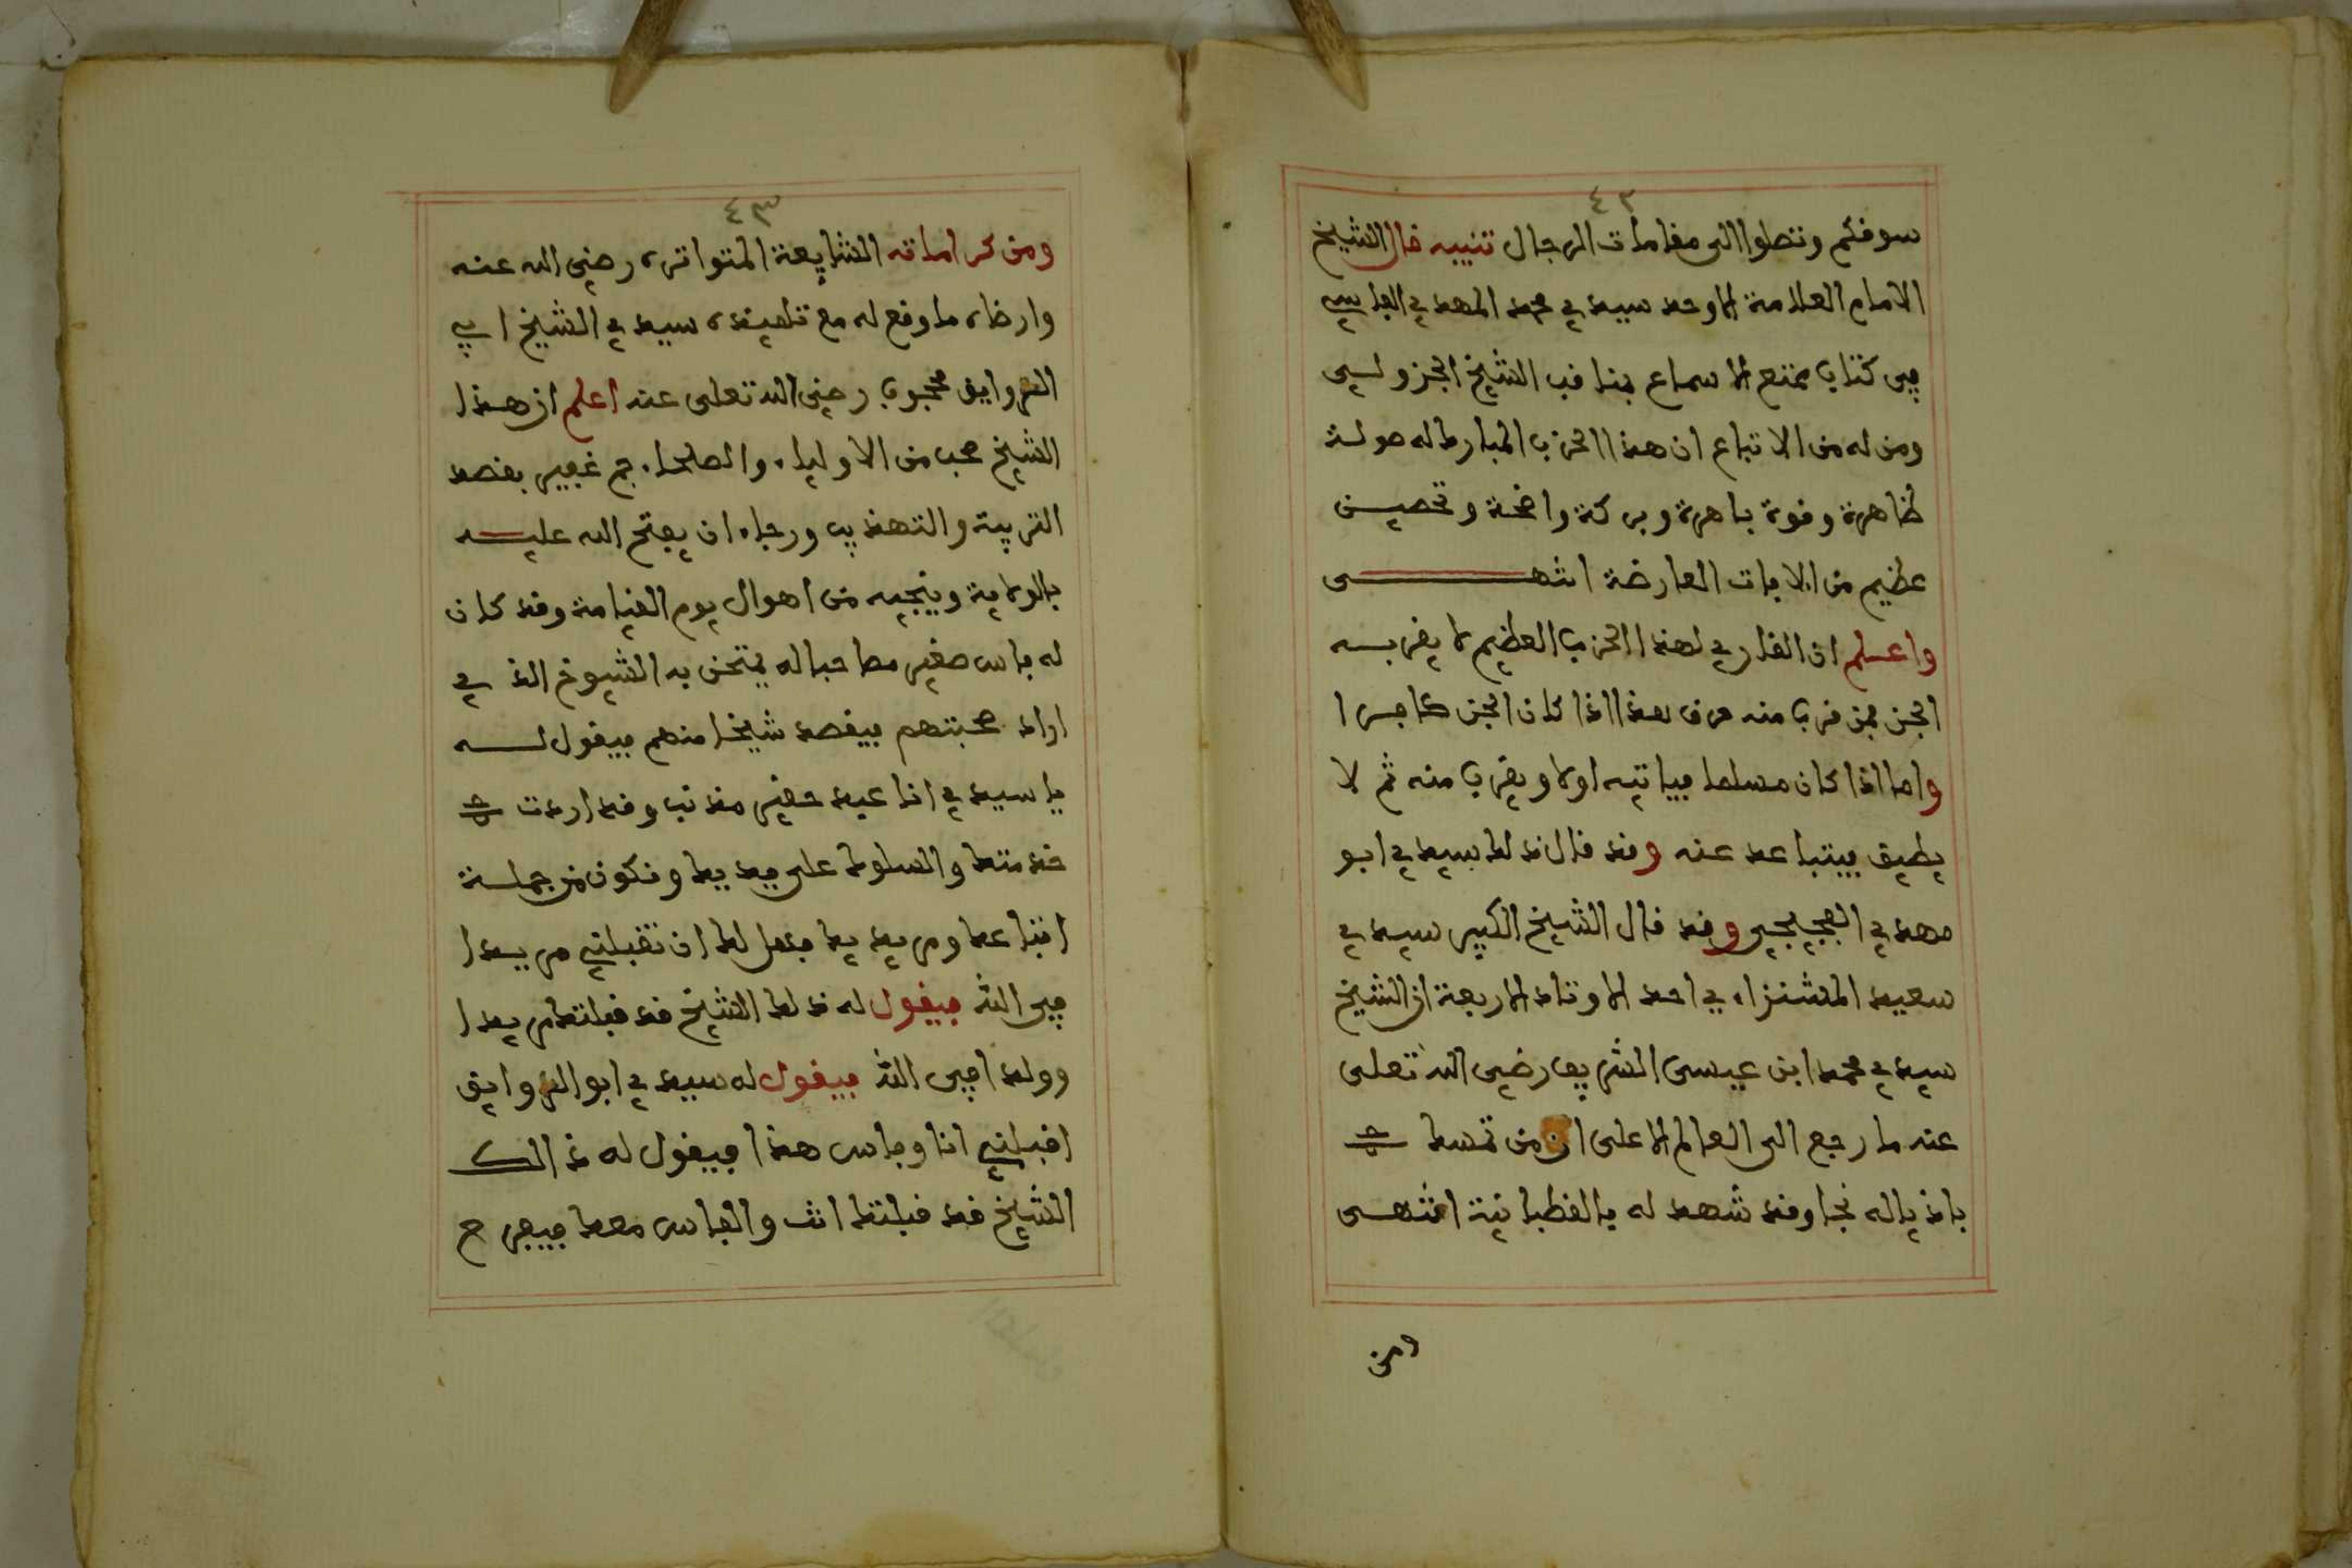 ٤٢
سوفكم وتصلوا الى مقامات الرجال تنبيه قال الشيخ
الامام العلامة الاوحد سيدي محمد المهدي الفاسي
في كتاب ممتع الاسماع بمناقب الشيخ الجزولي
ومن له من الاتباع ان هذا الحزب المبارك له صولة
ظاهرة وقوة باهرة وبركة واضحة وتحصين
عظيم من الافات العارضة انتهى
واعلم ان القاري لهذا الحزب العظيم لا يقربه
الجن فمن قرب منه حرق هذا اذا كان الجن كافرا
واما اذا كان مسلما فياتيه اولا ويقرب منه ثم لا
يطيق فيتباعد عنه وقد قال ذلك سيدي ابو
مهدي الفجيجي وقد قال الشيخ الكبير سيدي
سعيد المشنزاءي احد الاوتاد الاربعة ان الشيخ
سيدي محمد ابن عيسى الشريف رضي الله تعلى
عنه ما رجع الى العالم الاعلى ان من تمسك
باذياله نجا وقد شهد له بالقطبانية انتهى
ومن
٤٣
ومن كراماته الشايعة المتواترة رضي الله عنه
وارضاه ما وقع له مع تلميذه سيدي الشيخ ابي
الرواين محجوب رضي الله تعلى عنه اعلم ان هذا
الشيخ صحب من الاولياء والصلحاء جم غفير بقصد
التربية والتهذيب ورجاء ان يفتح الله عليه
بالولاية وينجيه من اهوال يوم القيامة وقد كان
له فاس صغير مصاحبا له يمتحن به الشيوخ الذي
اراد صحبتهم فيقصد شيخا منهم فيقول له
يا سيدي انا عبد حقير مذنب وقد اردت
خدمتك والسلوك على يديك ونكون من جملة
اتباعك ومريديك فهل لك ان تقبلني مريدا
في الله فيقول له ذلك الشيخ قد قبلتك مريدا
وولدا في الله فيقول له سيدي ابو الرواين
اقبلني انا وفاس هذا فيقول له ذالك
الشيخ قد قبلتك انت والفاس معك فيفرح